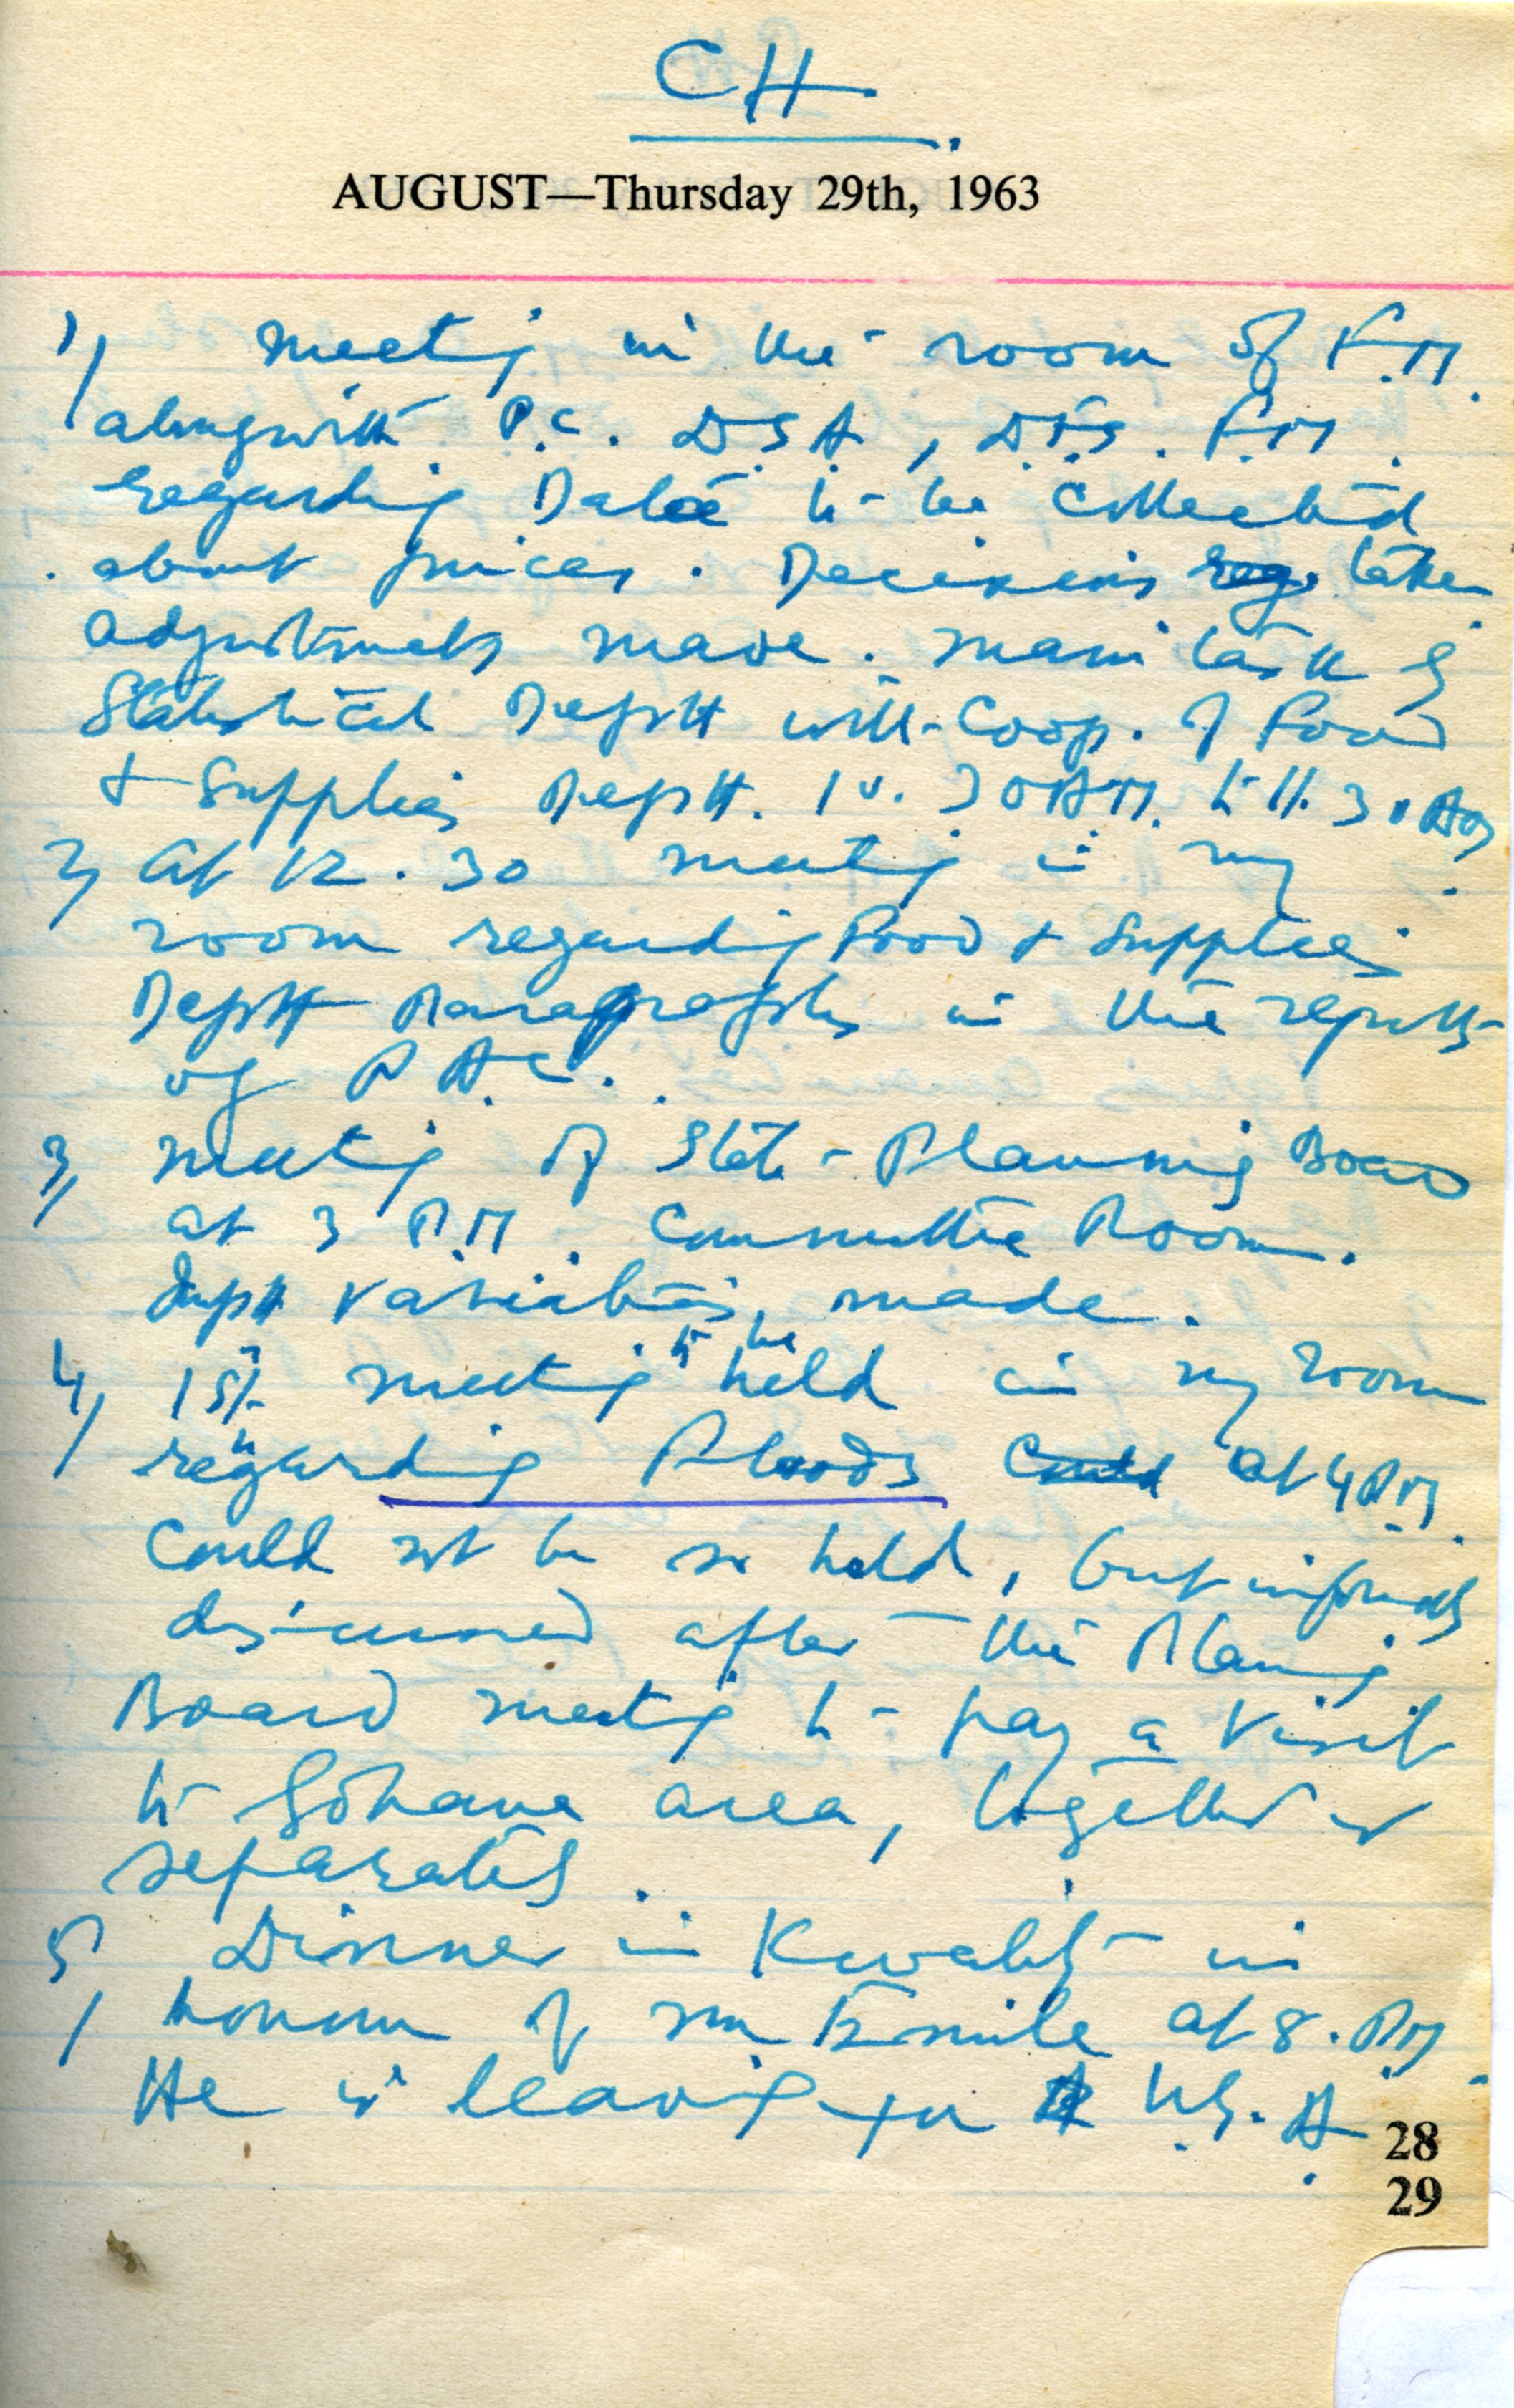 CH.
AUGUST—Thursday 29th, 1963
1) meeting in the room of F.M.
alongwith P.C. D.S.A, D.F.S. F.M.
regarding Data to be collected
about prices. Decisions taken
adjustments made. main task of
Statistical Deptt with Coop. of Food
& Supplies Deptt. 10.30 A.M. to 11.30 AM.
2) at 12.30 meeting in my
room regarding Food & Supplies
Deptt Paragraphs in the reports
of P.A.C.
3) meeting of State Planning Board
at 3 P.M. Committee Room.
made.
4) 1st meeting to be held in my room
regarding Floods at 4 P.M.
Could not be so held, but informally
discussed after the Planning
Board meeting to pay a visit
to Gohana area, together or
separately.
5) Dinner in Kwality in
honour of Mr Emile at 8. PM.
He is leaving for U.S.A.
28
29